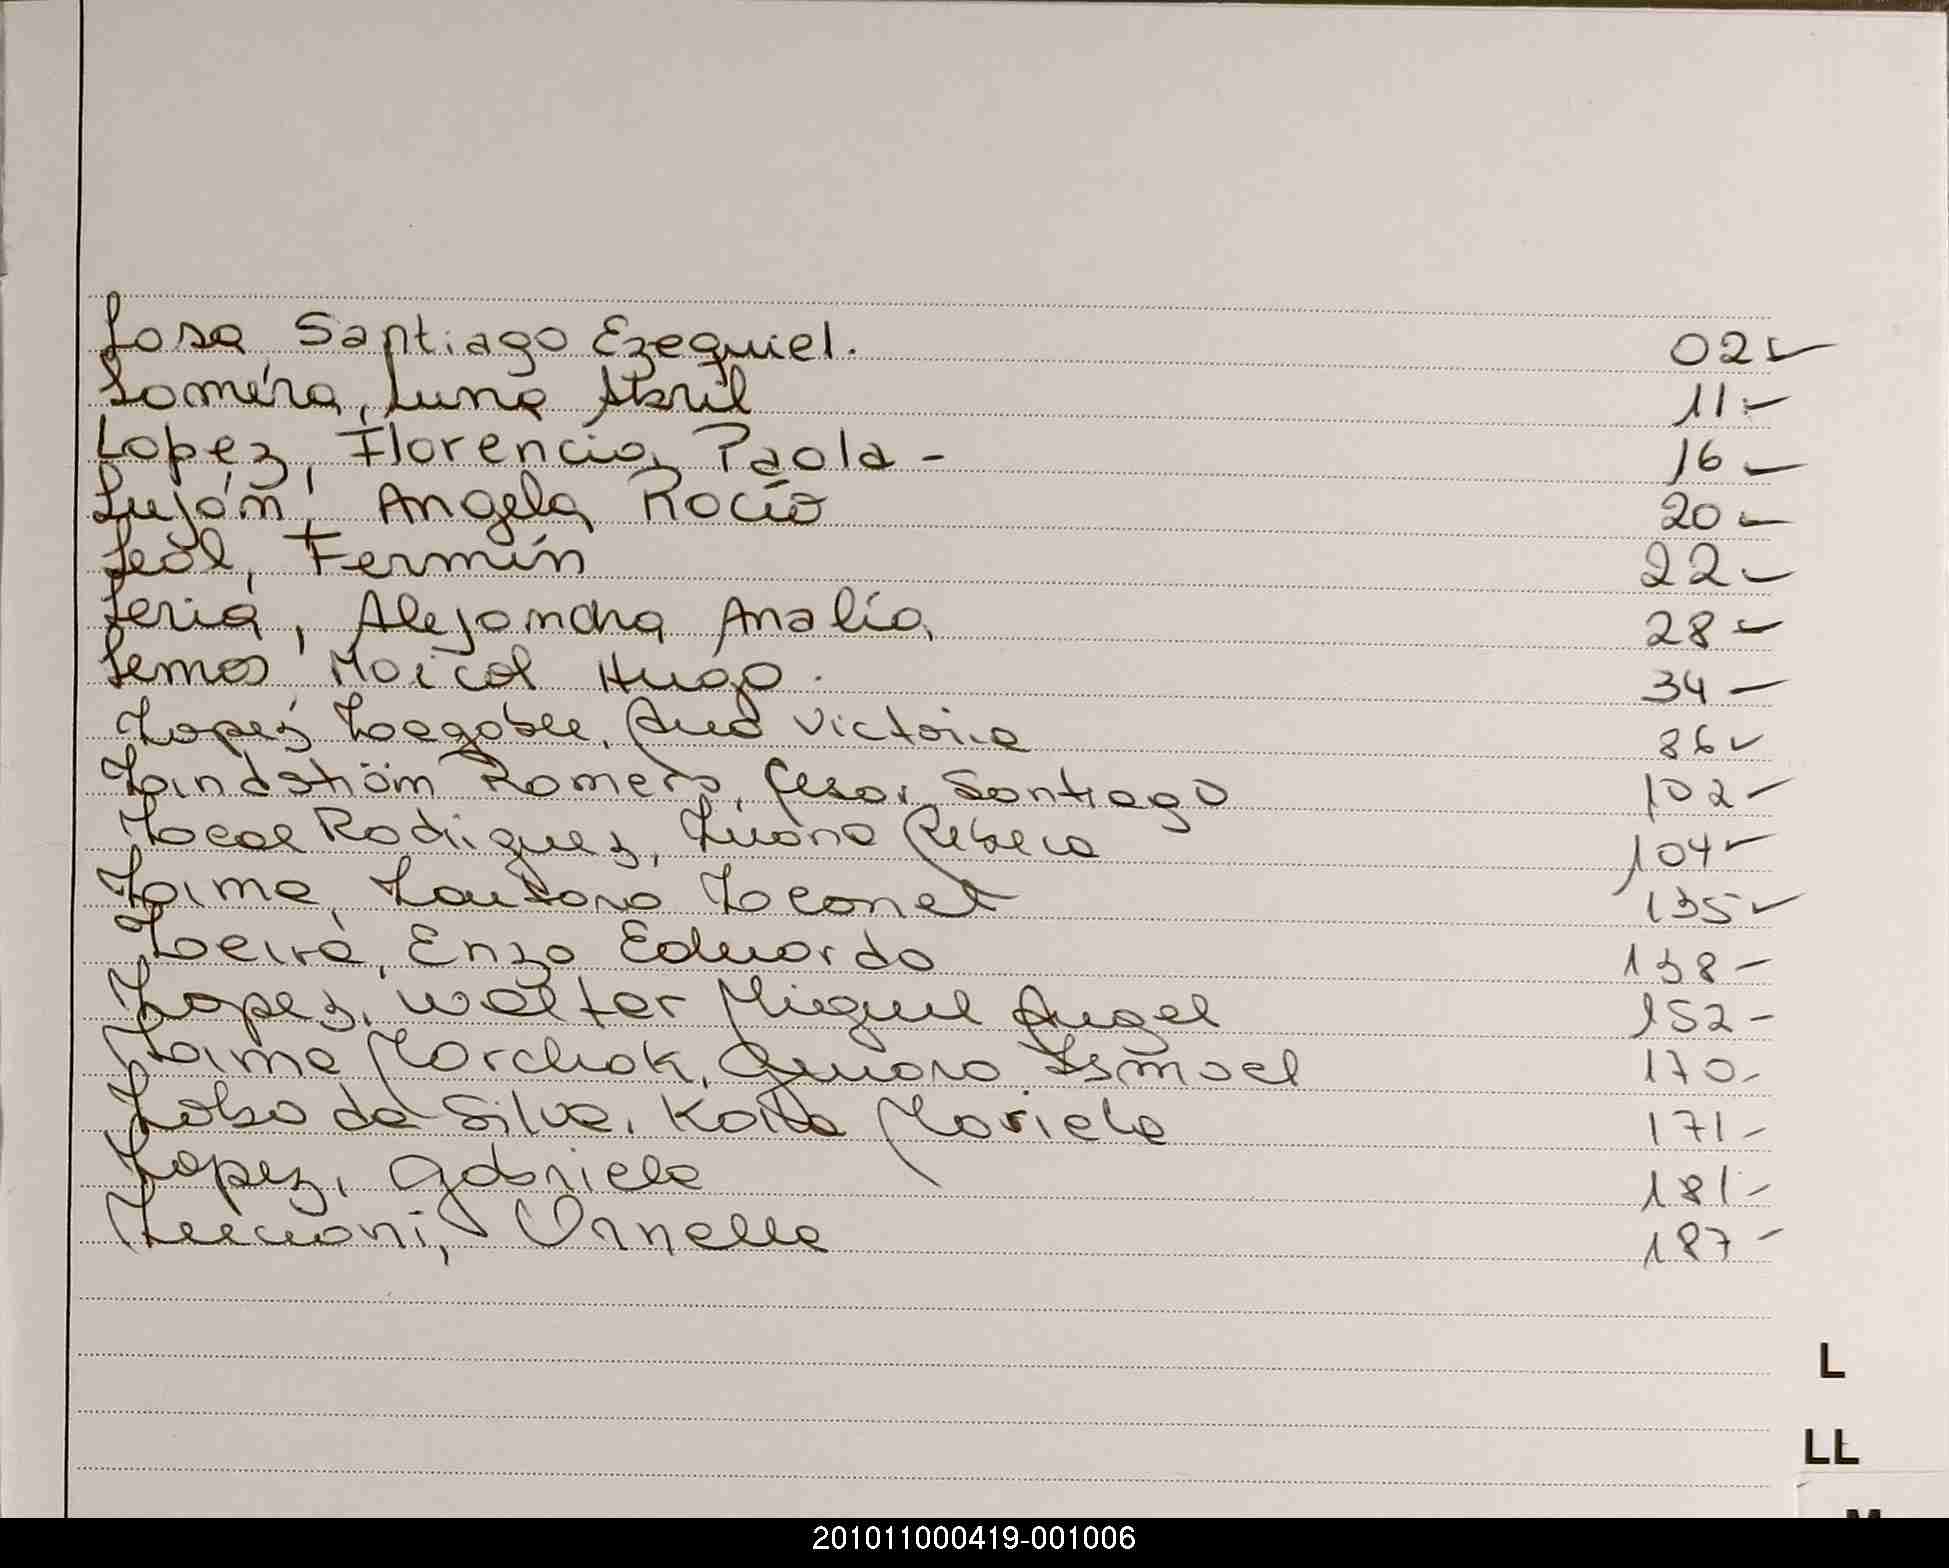 Losa, Santiago Ezequiel. 02
Loméra, Luna Abril 11
Lopez, Florencia, Paola - 16
Luján, Angela Rocío 20
Leál, Fermín 22
Leria, Alejandra Analía, 28
Lemos Maicol Hugo. 34
Lopez Victoria 86
Lindström Romero, Cesar Santiago 102
Rodriguez, Luana Rebeca 104
Lima, Lautaro Leonel 135
Leiva, Enzo Eduardo 138
Lopez, Walter Miguel Angel 152
Lima Marchok, Ismael 170
Lobo da Silva, Karla Mariela 171
Lopez, Gabriela 181
Ornella 187
L
LL
201011000419-001006